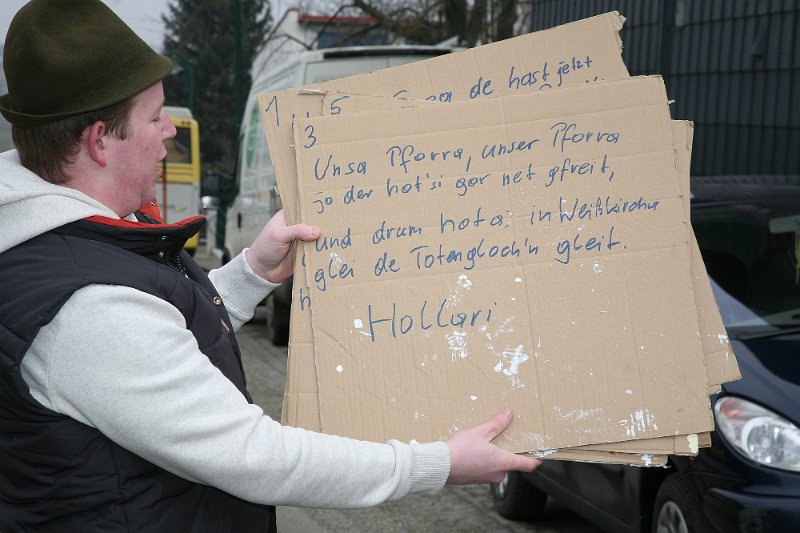 1
5
de hast jetzt
3
Unsa Pforra, unser Pforra
jo der hot'si gor net gfreit,
und drum hota in Weißkircha
glei de Totengloch'n gleit.
Hollari